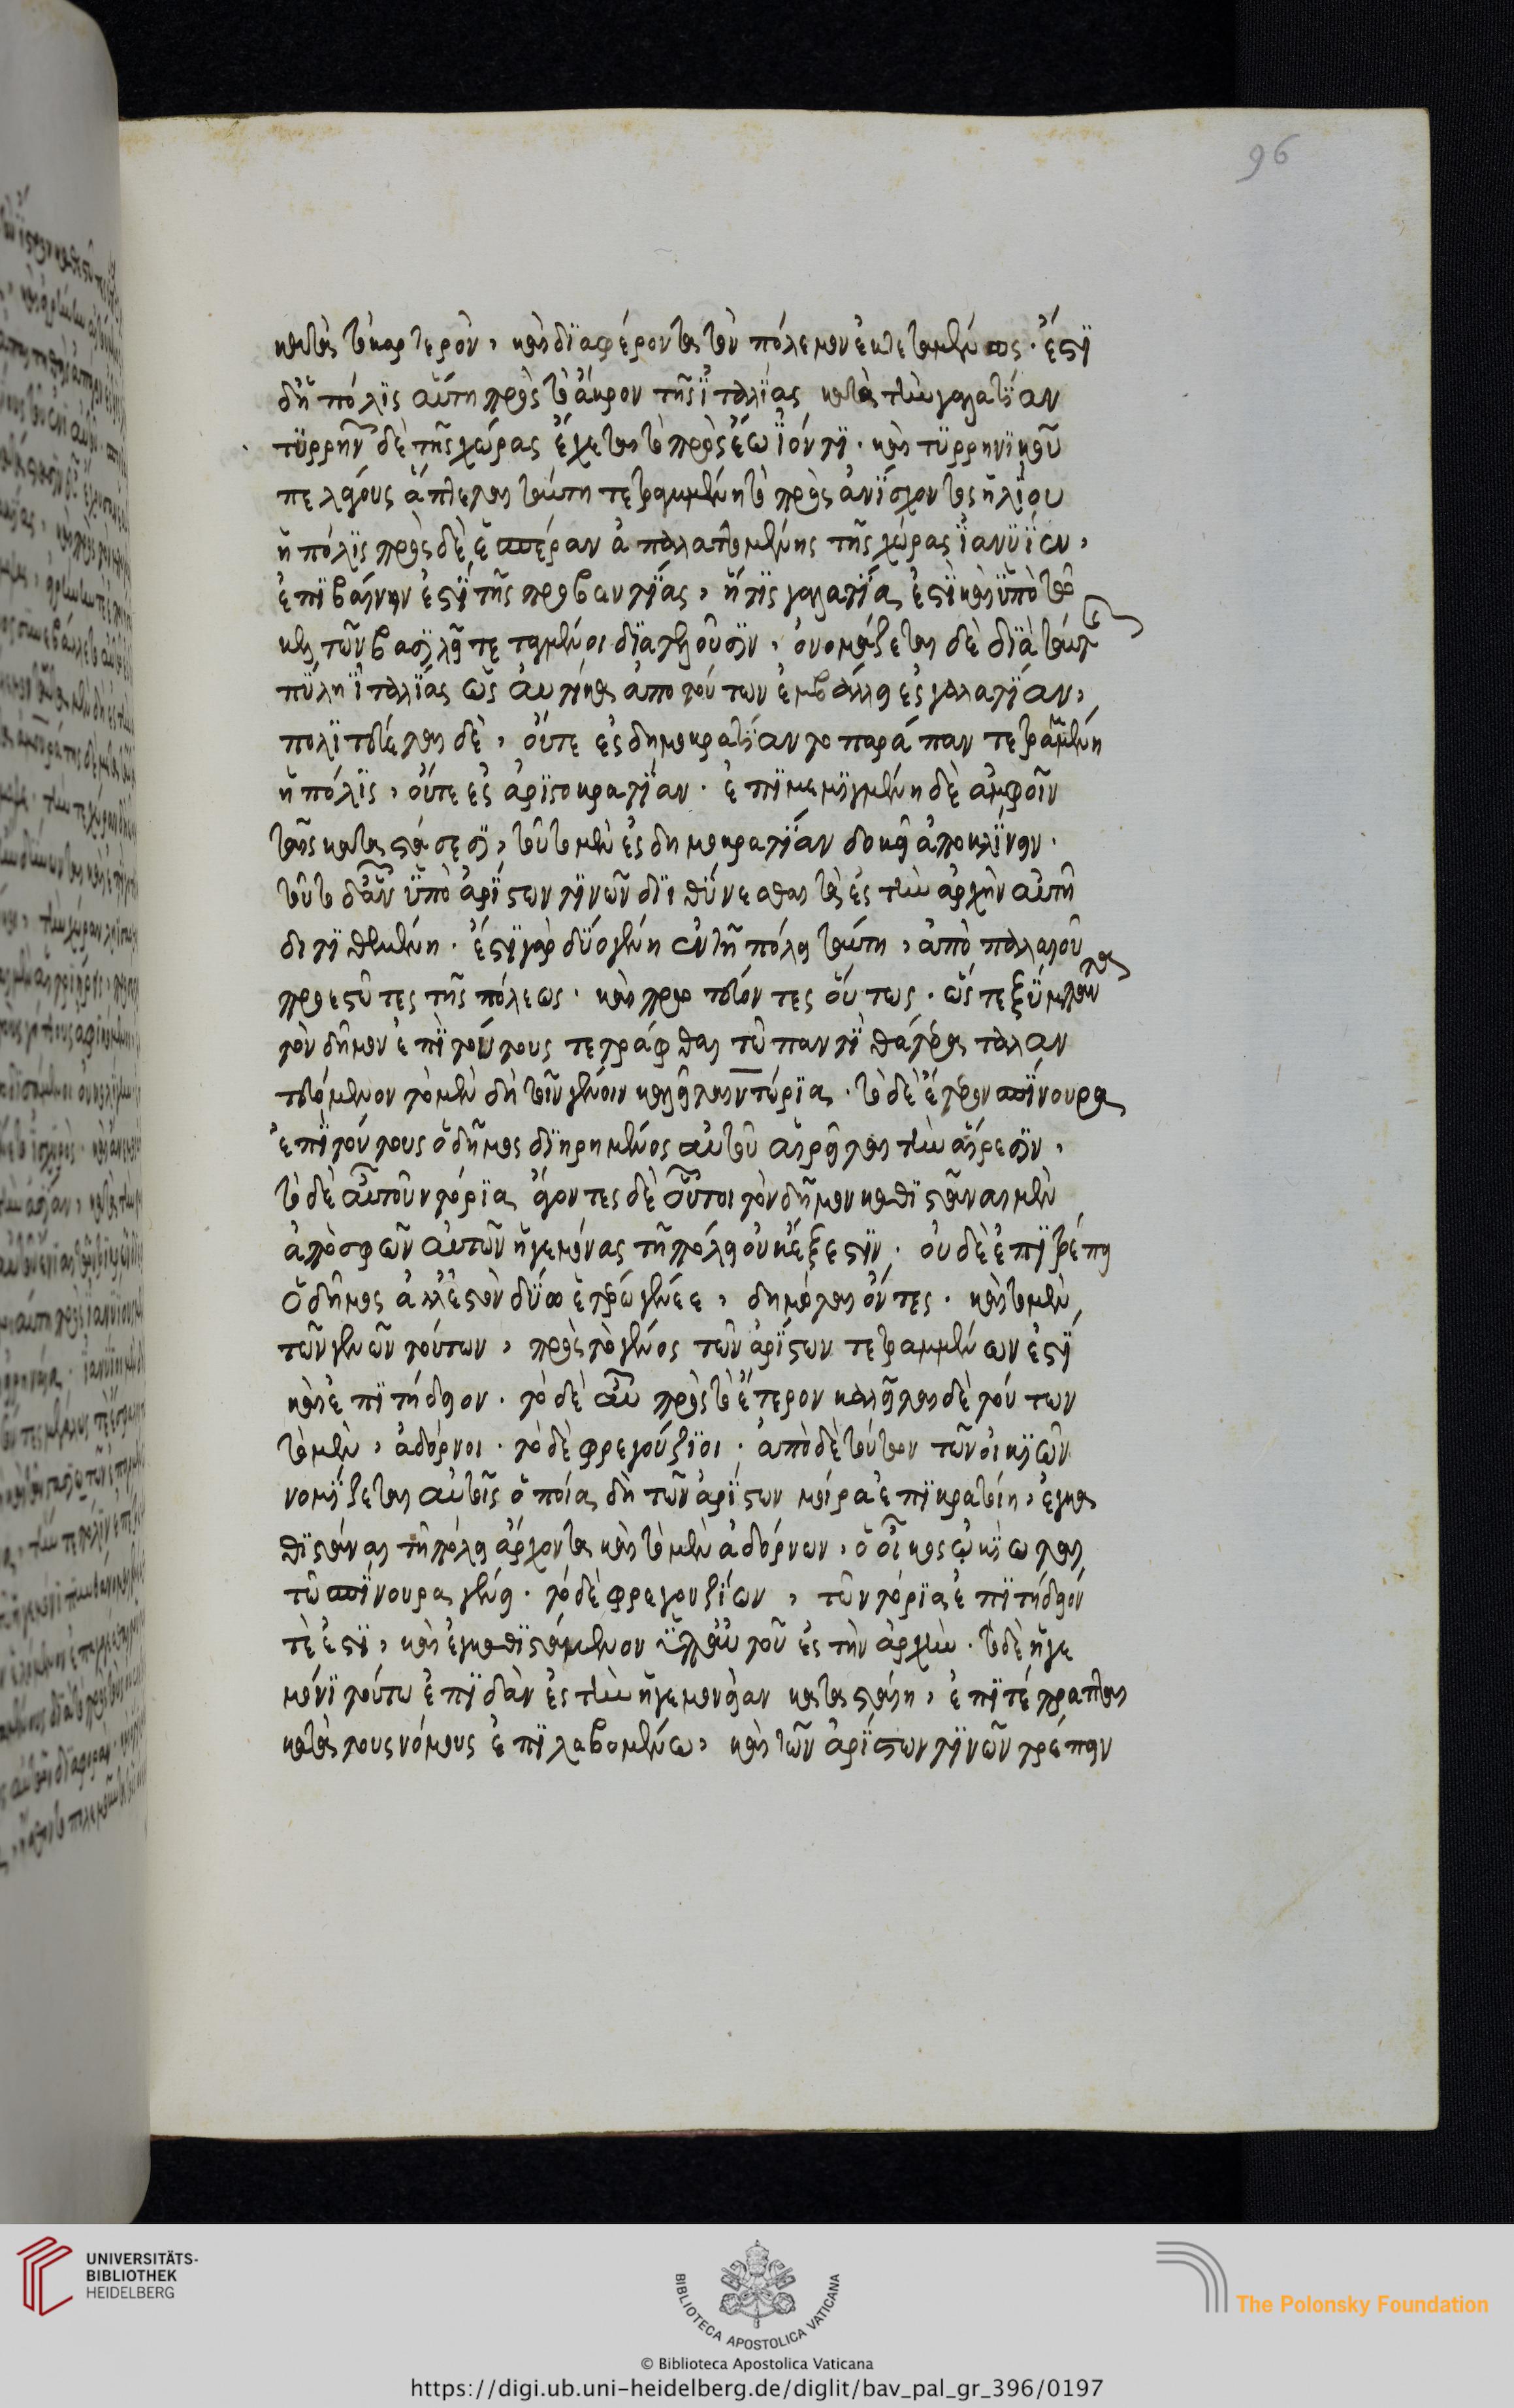 κατὰ τὸ καρτερὸν, καὶ διαφέροντα τὸν πόλεμον ἐκτεταμένως. ἔστϊ
δὴ πόλϊς αὕτη πρὸς τὸ ἄκρον τῆς ἰταλίας κατὰ τὴν γαλατίαν
τϋρρην δὲ τῆς χώρας ἔχεται τὸ πρὸς ἕω ἰόντϊ. καὶ τϋρρηνϊκοῦ
πελάγους ἅπτεται ταύτη τετραμμένη τὸ πρὸς ἀνίσχοντας ἡλίου
ἡ πόλϊς πρὸς δὲ ἑσπέραν ἀπαλαττομένης τῆς χώρας ἰανϋίων,
ἐπϊβαίνειν ἐστϊ τῆς προβαντίας, ἥτϊς γαλατία ἐστϊ καὶ ὑπὸ τῶ
κελτῶν βασϊλεῖ τεταγμένοι διατελοῦσϊν. ὀνομάζεται δὲ διὰ ταῦτα
πύλη ἰταλίας ὡς αυτίκα ἀπο τούτων ἐμβάλλει ἐς γαλατίαν,
πολϊτεύεται δὲ, οὔτε ἐς δημοκρατίαν το παράπαν τετραμμένη
ἡ πόλϊς, οὔτε ἐς ἀρϊστοκρατίαν. ἐπϊμεμϊγμένη δὲ ἀμφοῖν
ταῖς καταστάσεσϊ, τοῦτο μὲν ἐς δημοκρατίαν δοκεῖ ἀποκλίνειν.
τοῦτο δ' αὖ ὑπὸ ἀρίστων τϊνῶν δϊϊθύνεσθαι τὰ ἐς τὴν ἀρχὴν αὐτῆ
διτϊθεμένη. ἔστϊ γὰρ δύο γένη ἐν τῆ πόλει ταύτη, ἀπὸ παλαιοῦ
προεστῶτες τῆς πόλεως. καὶ πρωτεύοντες οὕτως. ὥστε ξύμπαντα
τὸν δῆμον ἐπϊ τούτους τετράφθαι τῶ παντϊ θάτερα ταλαν
τευόμενον τὸ μὲν δὴ τοῖν γένοιν καλεῖται ντόρϊα. τὸ δὲ ἕτερον σπίνουρα
ἐπϊ τούτους ὁ δῆμος δϊηρημένος αὐτοῦ αἱρεῖται τὴν αἵρεσϊν,
τὸ δὲ αυτοῦ ντόρϊα ἄγοντες δὲ οὗτοι τὸν δῆμον καθϊστᾶναι μὲν
ἀπὸ σφῶν αὐτῶν ἡγεμόνας τῆ πόλει οὐκ ἔξεστϊν. οὐδὲ ἐπϊτρέπει
ὁ δῆμος ἀλλ' ἐστὸν δύω ἑτέρω γένεε, δημόται ὄντες. καὶ τὸ μὲν
τῶν γενῶν τούτων, πρὸς τὸ γένος τῶν ἀρίστων τετραμμένων ἐστϊ
καὶ ἐπϊτήδειον. τὸ δὲ αὖ πρὸς τὸ ἕτερον καλεῖται δὲ τούτων
τὸ μὲν, ἀδόρνοι. τὸ δὲ φρεγούζϊοι. ἀπὸ δὲ τούτων τῶν οἰκϊῶν
νομίζεται αὐτοῖς ὁποία δὴ τῶν ἀρίστων μοίρα ἐπϊκρατοίη, ἐγκα
θϊστάναι τῆ πόλει ἄρχοντα καὶ τὸ μὲν ἀδόρνων, ὁ οἶκος ὠκϊωται
τῶ σπίνουρα γένει. τὸ δὲ φρεγουζίων, τῶ ντόρϊα ἐπϊτήδειόν
τὲ ἐστϊ, καὶ ἐγκαθϊστάμενον ὑπ' αὐτοῦ ἐς τὴν ἀρχὴν. τὸ δὲ ἡγε
μόνϊ τούτω ἐπϊδὰν ἐς τὴν ἡγεμονείαν καταστάιη, ἐπϊτέτραπται
κατὰ τους νόμους ἐπϊλαβομένω, καὶ τῶν ἀρίστων τϊνῶν τρέπειν
96
UNIVERSITÄTS-
BIBLIOTHEK
HEIDELBERG
BIBLIOTECA APOSTOLICA VATICANA
The Polonsky Foundation
© Biblioteca Apostolica Vaticana
https://digi.ub.uni-heidelberg.de/diglit/bav_pal_gr_396/0197